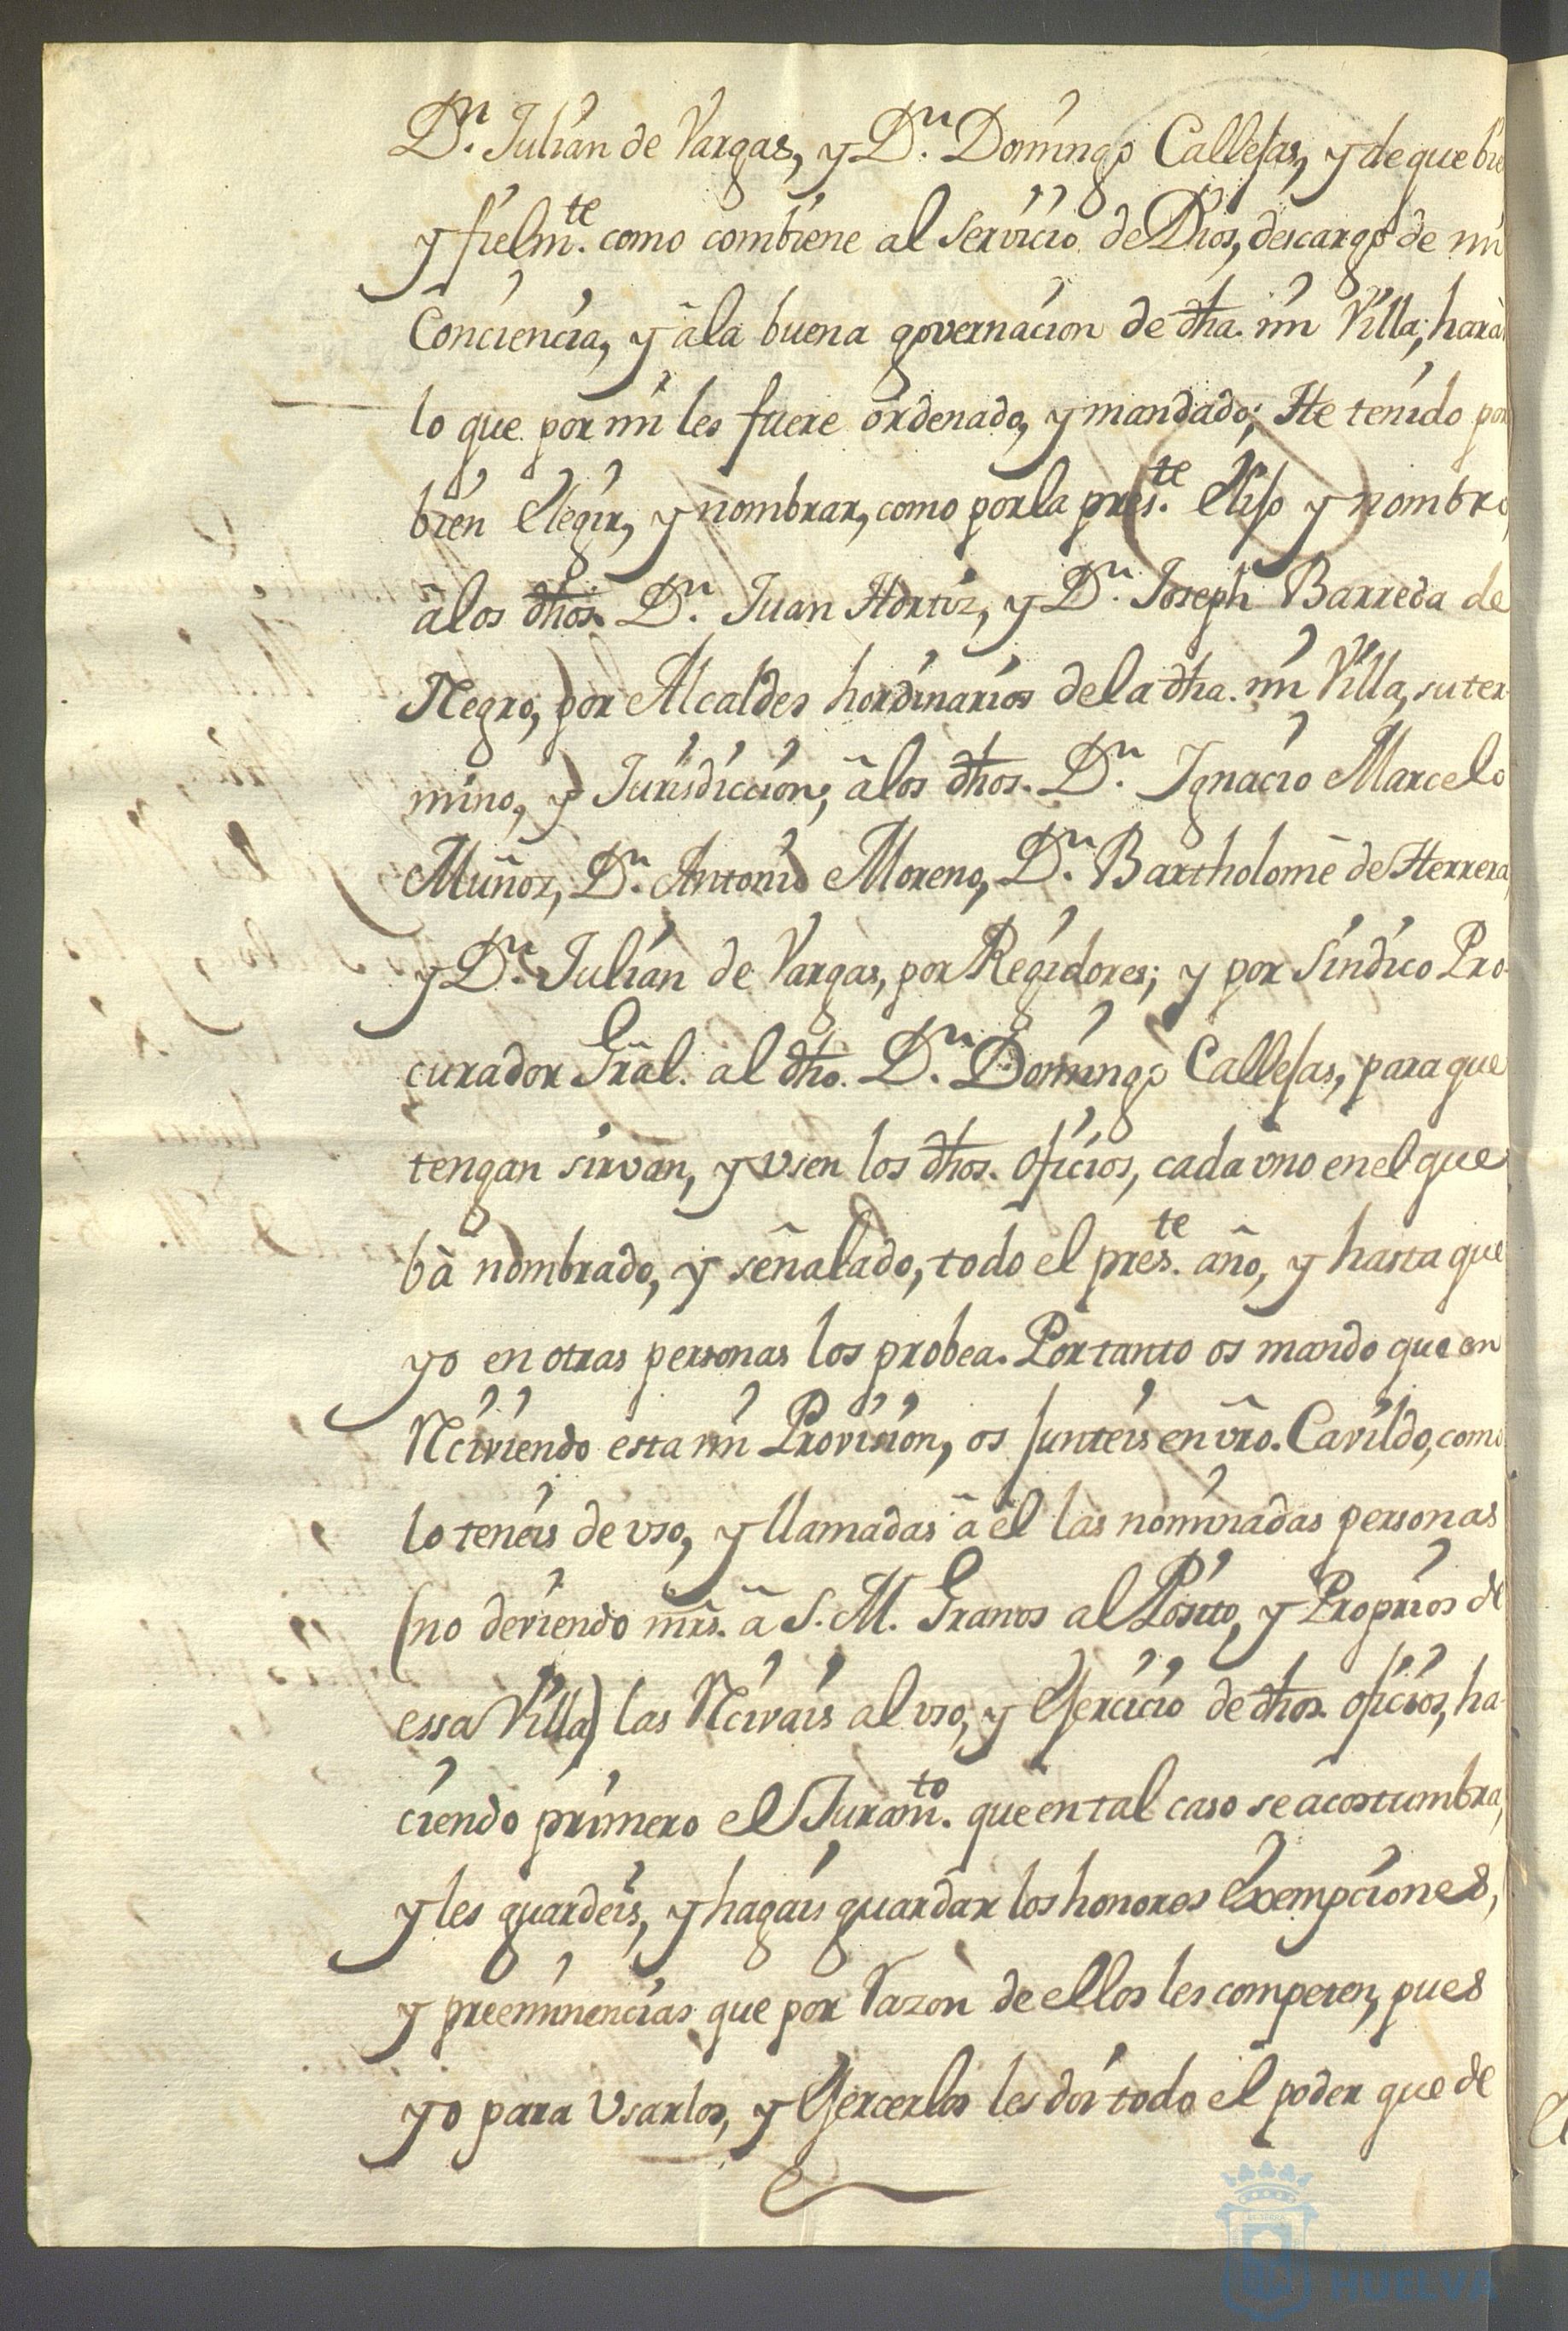 Dn. Julian de Vargas, y Dn. Domingo Callejas, y de que bie
y fielmte. como combiene al servicio de Dios, descargo de mi
Conciencia, y â la buena governacion de dha. mi Villa, harà
lo que por mi les fuere ordenado, y mandado; He tenido por
bien elegir, y nombrar, como por la preste. elijo y nombro,
â los dhos. Dn. Juan Hortiz, y Dn. Joseph Barreda de
Negro, por Alcaldes hordinarios de la dha. mi Villa, su ter-
mino, y Jurisdiccion; â los dhos. Dn. Ignacio Marcelo
Muñoz, Dn. Antonio Moreno, Dn. Bartholomê de Herrera,
y Dn. Julian de Vargas, por Regidores; y por Sindico Pro-
curador Gràl. al dho. Dn. Domingo Callejas, para que
tengan sirvan, y vsen los dhos. oficios, cada vno en el que
bâ nombrado, y señalado, todo el preste. año, y hasta que
yo en otras personas los probea. Por tanto os mando que en
Rciviendo esta mi Provision, os junteis en vr̃o. Cavildo, como
lo teneis de vso, y llamadas â êl las nominadas personas
(no deviendo mr̃s. â S. M. Granos al Posito, y Proprios de
essa Villa) las Rcivais al vso, y Ejercicio de dhos. oficios, ha-
ciendo primero el Juramto. que en tal caso se acostumbra,
y les guardeis, y hagais guardar los honores Exempciones,
y preeminencias que por razon de ellos les competen, pues
yo para Vsarlos, y Ejercerlos les doi todo el poder que de
HUELVA